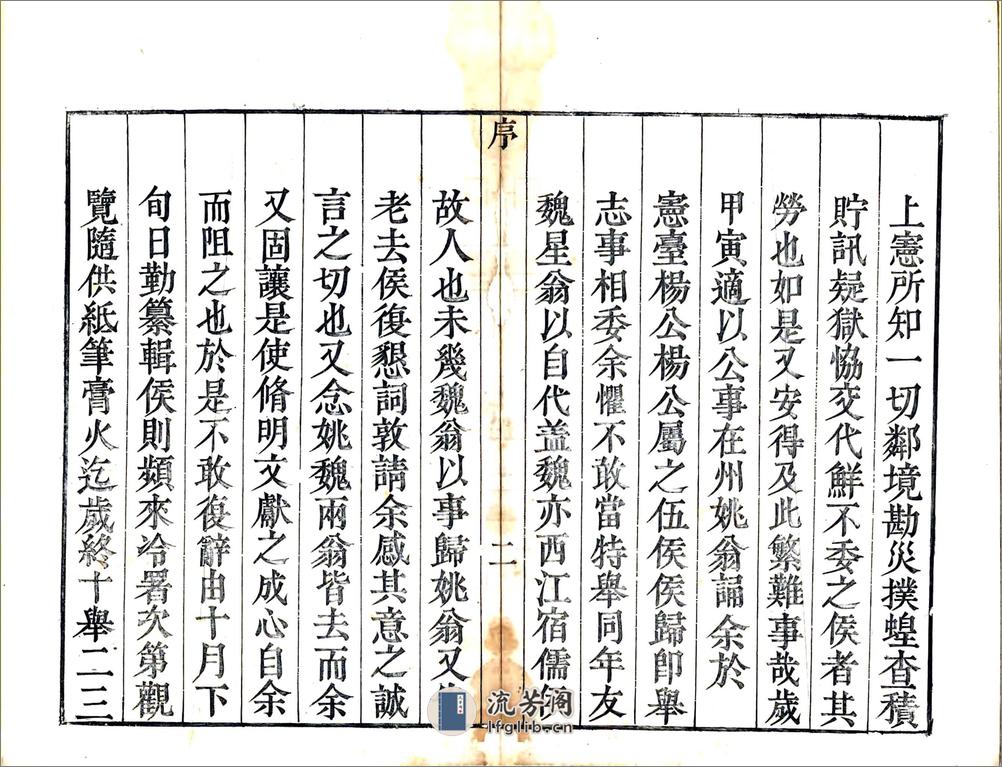 上憲所知一切鄰境勘災撲蝗查積
貯訊疑獄恊交代鮮不委之侯者其
勞也如是又安得及此繁難事哉歲
甲寅適以公事在州姚翁誦余於
憲臺楊公楊公屬之伍侯侯歸卽舉
志事相委余懼不敢當特舉同年友
魏星翁以自代盖魏亦西江宿儒
序
二
故人也未幾魏翁以事歸姚翁又
老去侯復懇詞敦請余感其意之誠
言之切也又念姚魏兩翁皆去而余
又固讓是使脩明文獻之成心自余
而阻之也於是不敢復辭由十月下
旬日勤纂輯侯則頻來冷署次第觀
覽隨供紙筆膏火迄歲終十舉二三
流芳閣
lfglib.cn